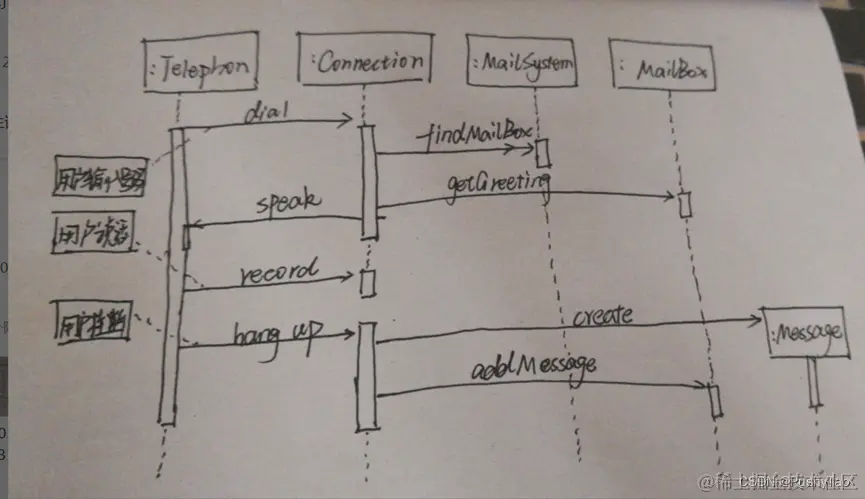 :Telephon
:Connection
:MailSystem
: MailBox
dial
findMailBox
用户输入号码
getGreeting
speak
用户读音
record
用户挂断
hang up
create
:Message
addMessage
@稀土掘金技术社区